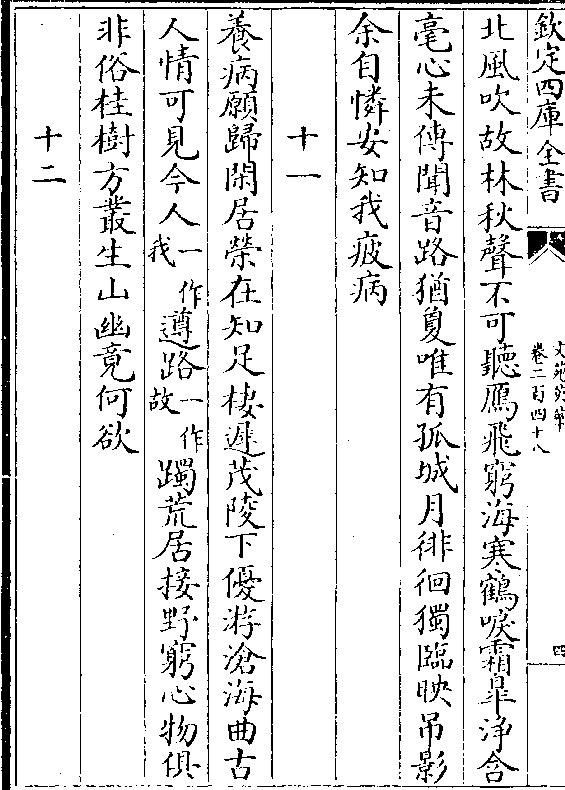 欽定四庫全書
文苑英華
卷二百四十八
四
北風吹故林秋聲不可聽鴈飛窮海寒鶴唳霜臯浄含
毫心未傳聞音路猶夐唯有孤城月徘徊獨臨映吊影
余自憐安知我疲病
十一
養病願歸閑居榮在知足棲遲茂陵下優游滄海曲古
人情可見今人一作我遵路一作故躅荒居接野窮心物俱
非俗桂樹方叢生山幽竟何欲
十二